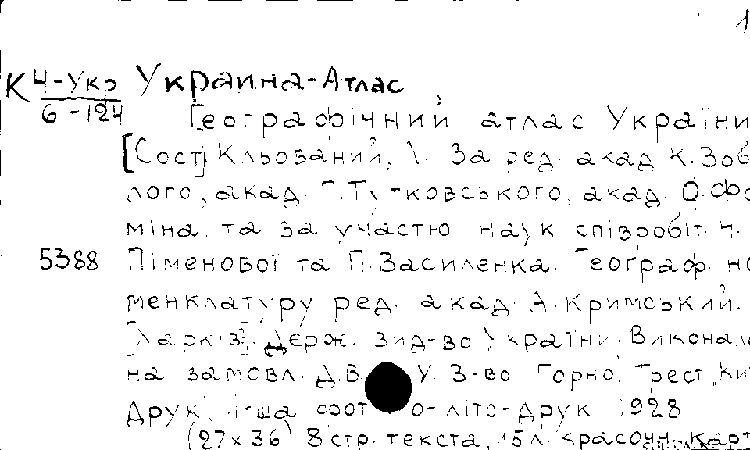 1
К Ч-Укр Украина-Атлас
6-124
Географічний атлас України
[Сост] Кльований, За ред. акад К. Зоб
лого, акад. Т. Тутковського, акад. О. Фо
міна, та за участю наук співробіт. Н.
5388 Піменової та П. Василенка. Географ. но
менклатуру ред. акад. А. Кримський.
[Харків], Держ. вид-во України. Викона
на замовл. Д.В. У. 3-во Горно, Трест, Ки
Друк, 1-ша фото-літо-друк 1928
(27 x 36) 8 стр. текста, 15 л. красочн. карт